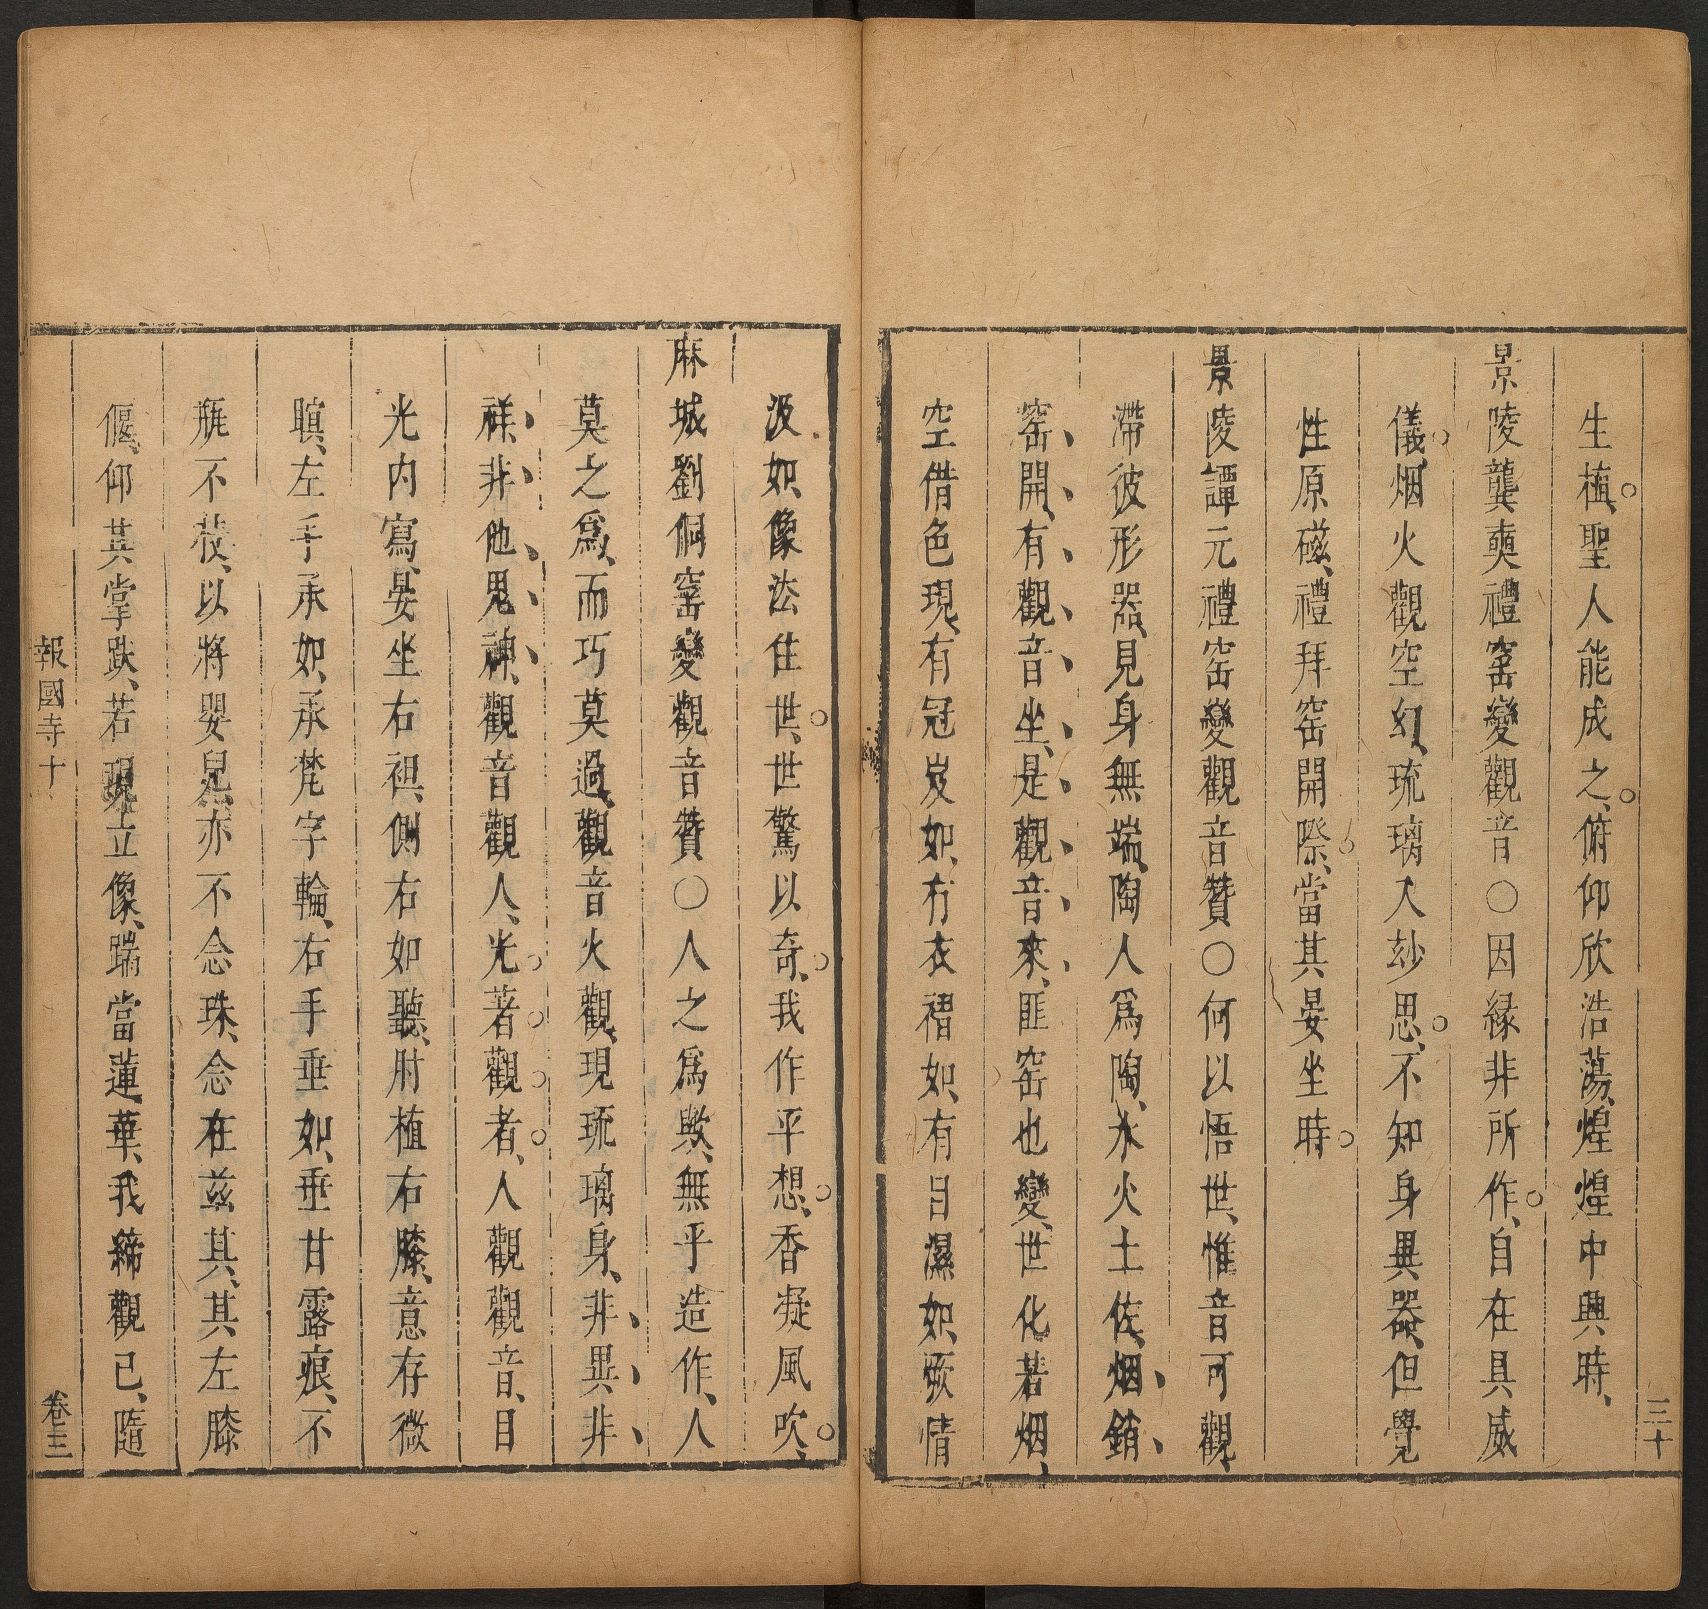 三十
生植、聖人能成之、俯仰欣浩蕩、煌煌中興時、
景陵龔奭禮窑變觀音○因緣非所作、自在具威
儀、烟火觀空幻、琉璃入玅思、不知身異器、但覺
性原磁、禮拜窑開際、當其晏坐時
景陵譚元禮窑變觀音贊○何以悟世、惟音可觀、
滯彼形器、見身無端、陶人爲陶、水火土佐、烟銷
窑開、有觀音坐、是觀音來、匪窑也變、世化若烟、
空借色現、有冠岌如、有衣褶如、有目濕如、厥情
汲如、像法住世、世驚以奇、我作平想、香凝風吹、
麻城劉侗窑變觀音贊○人之爲歟、無乎造作、人
莫之爲、而巧莫過、觀音火觀、現琉璃身、非異非
祥、非他鬼神、觀音觀人、光著觀者、人觀觀音、目
光內寫、晏坐右袒、側右如聽、肘植右膝、意存微
瞋、左手承如、承梵字輪、右手垂如、垂甘露痕、不
瓶不莰、以將嬰兒、亦不念珠、念在兹其、其左膝
偃、仰其掌趺、若現立像、踹當蓮華、我締觀已、隨
報國寺十
卷三